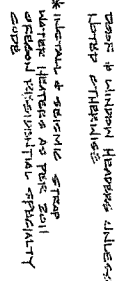 DOOR & WINDOW HEADERS UNLESS
NOTED OTHERWISE
* INSTALL & SEISMIC STRAP
WATER HEATERS AS PER 2011
OREGON RESIDENTIAL SPECIALTY
CODE